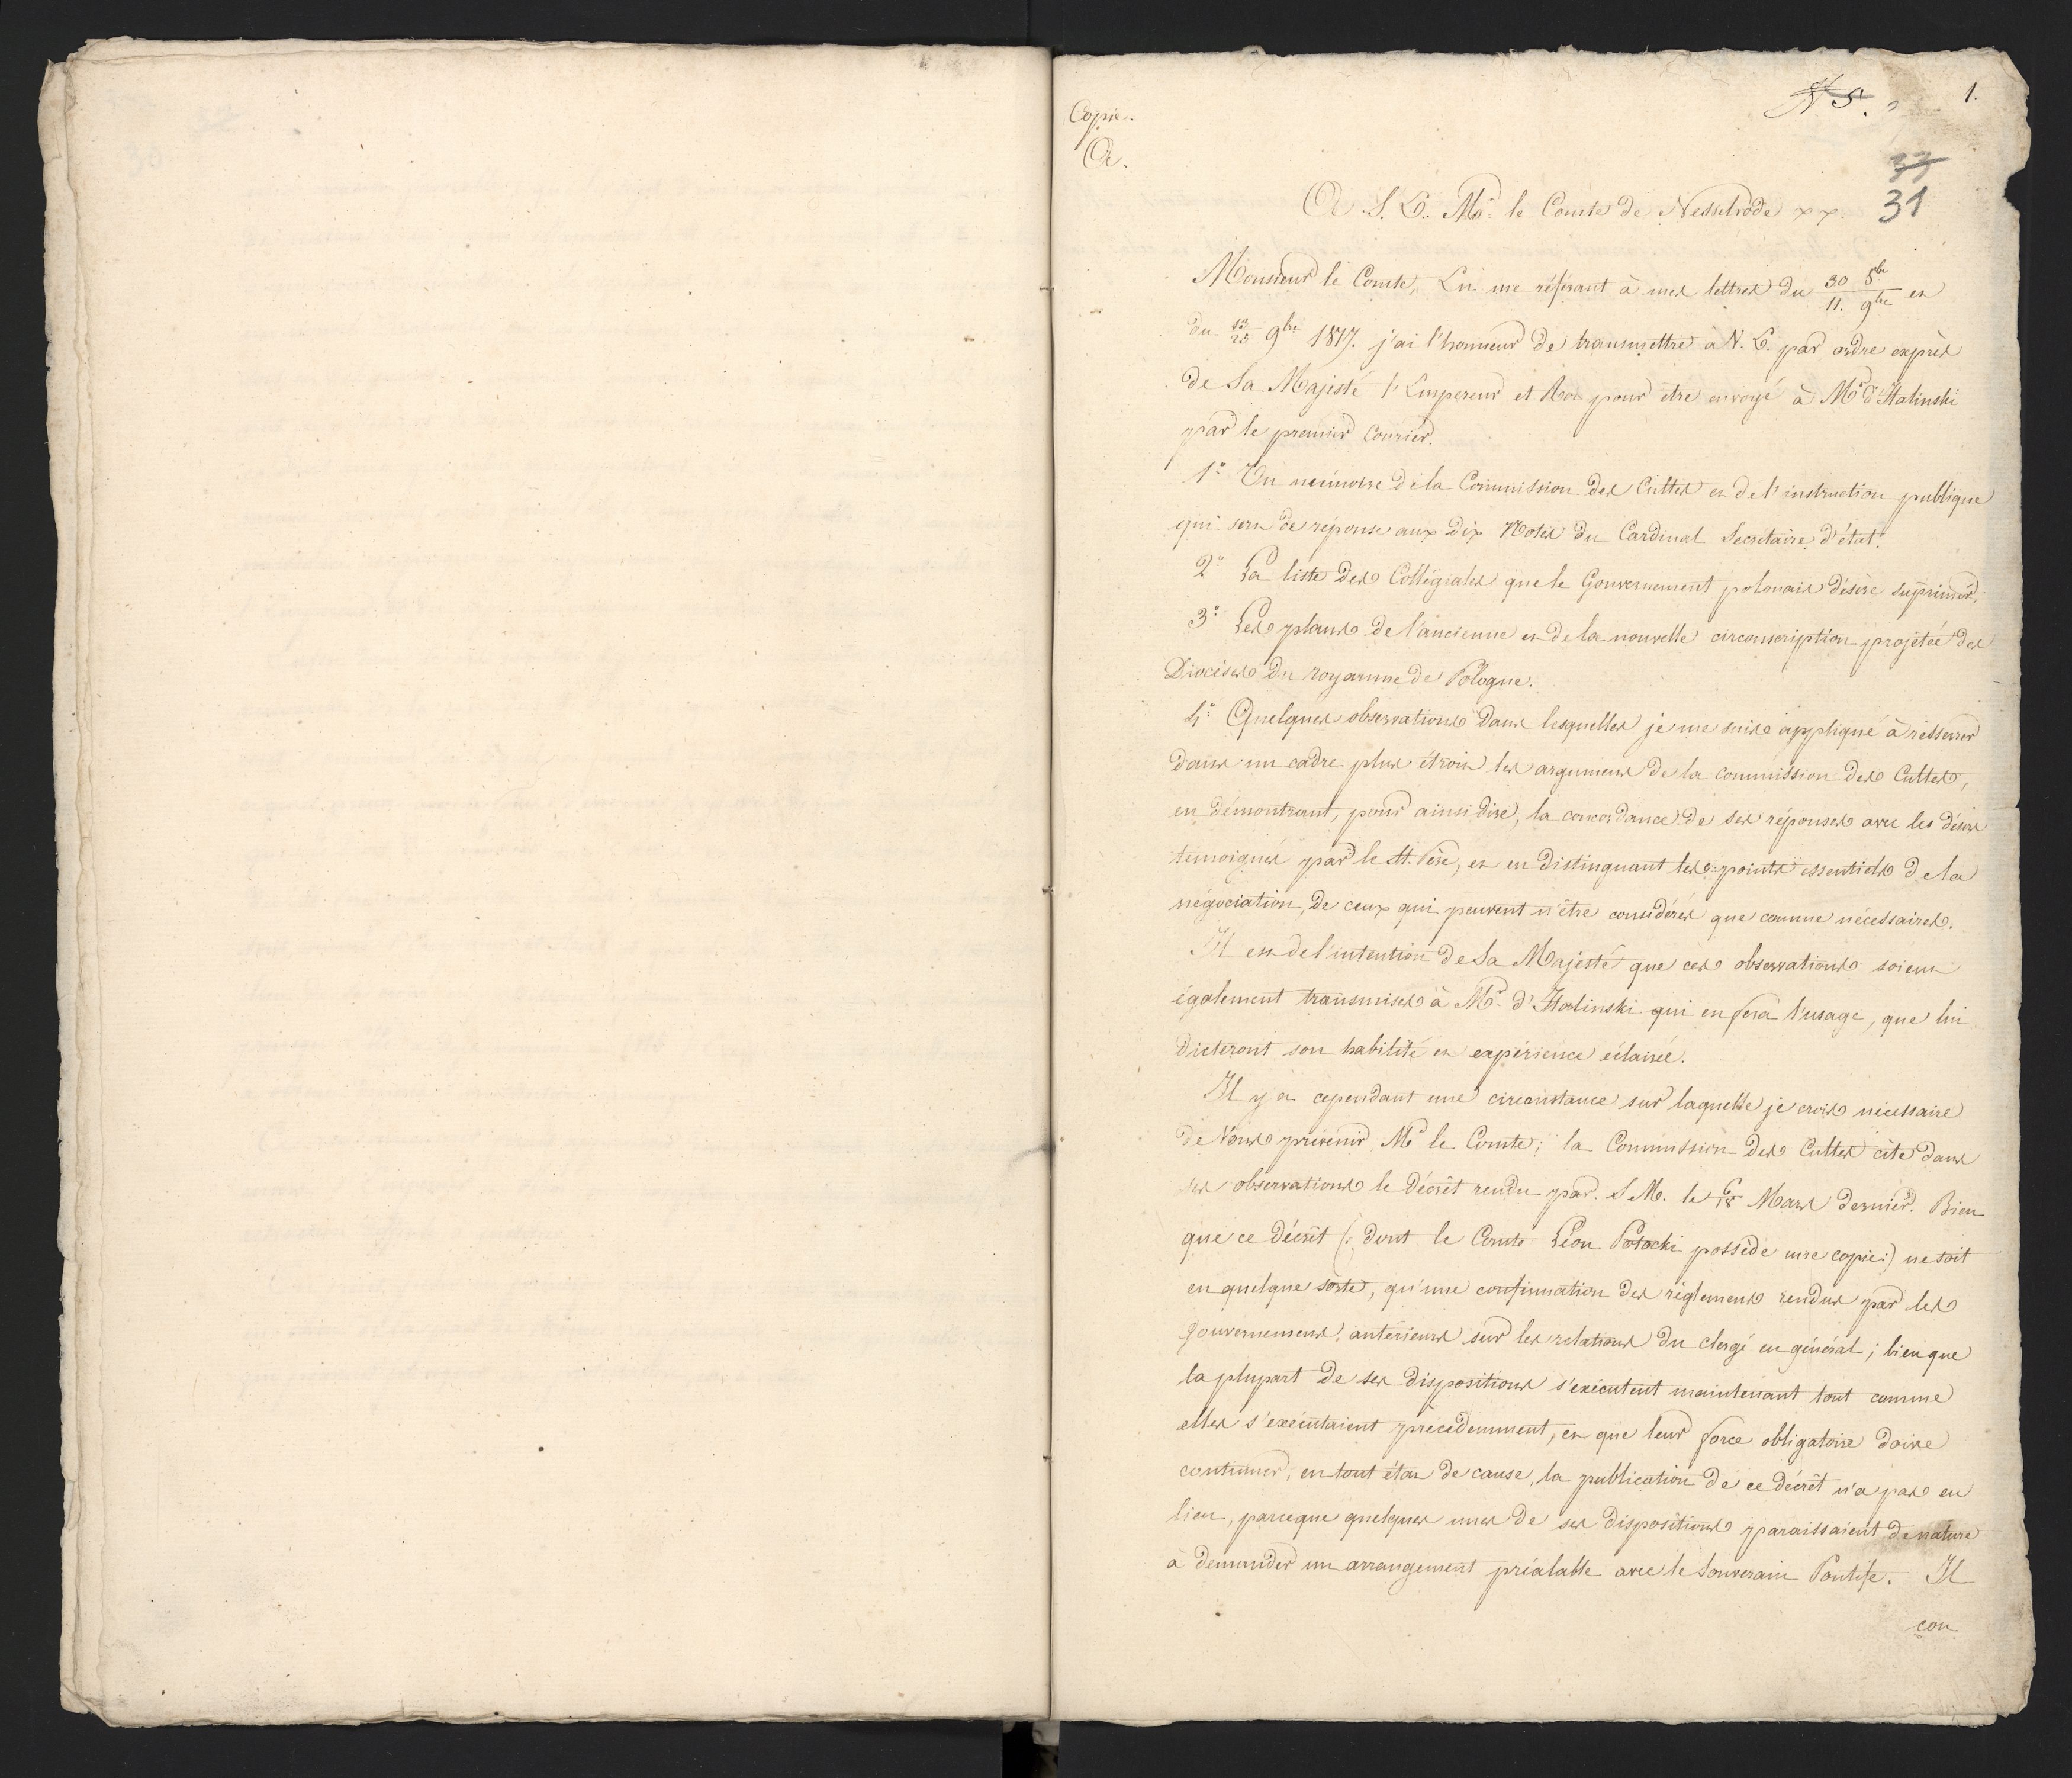 N 5. 1.
Copie.
A.
33
31
A S. E. Mr. le Comte de Nesselrode xx.
Monsieur le Comte, En me référant à mes lettres du 30 8bre / 11. 9bre et
du 13/25 9bre 1817. j'ai l'honneur de transmettre à V. E. par ordre exprès
de Sa Majesté l'Empereur et Roi pour être envoyé à Mr d'Italinski
par le premier Courier.
1° Un mémoire de la Commission des Cultes et de l'instruction publique
qui sera de réponse aux dix Notes du Cardinal Secrétaire d'état.
2° La liste des Collégiales que le Gouvernement polonais désire suprimer.
3° Les plans de l'ancienne et de la nouvelle circonscription projetée des
Diocèses du royaume de Pologne.
4° Quelques observations dans lesquelles je me suis appliqué à resserrer
dans un cadre plus étroit les argumens de la commission des Cultes,
en démontrant, pour ainsi dire, la concordance de ses réponses avec les désirs
temoignés par le St. Père, et en distinguant les points essentiels de la
négociation, de ceux qui peuvent n'être considérés que comme nécessaires.
Il est de l'intention de Sa Majesté que ces observations soient
également transmises à Mr. d'Italinski qui en fera l'usage, que lui
dicteront son habilité et expérience éclairée.
Il y a cependant une circonstance sur laquelle je crois nécessaire
de Vous prévenir Mr le Comte; la Commission des Cultes cite dans
ses observations le décrêt rendu par S. M. le 6/18 Mars dernier. Bien
que ce décrêt (: dont le Comte Léon Potocki possède une copie:) ne soit
en quelque sorte, qu'une confirmation des réglemens rendus par les
gouvernemens antérieurs sur les relations du clergé en général; bien que
la plupart de ses dispositions s'exécutent maintenant tout comme
elles s'exécutaient précédemment, et que leur force obligatoire doive
continuer, en tout état de cause, la publication de ce décrêt n'a pas eu
lieu, parceque quelques unes de ses dispositions paraissaient de nature
à demander un arrangement préalable avec le Souverain Pontife. Il
con